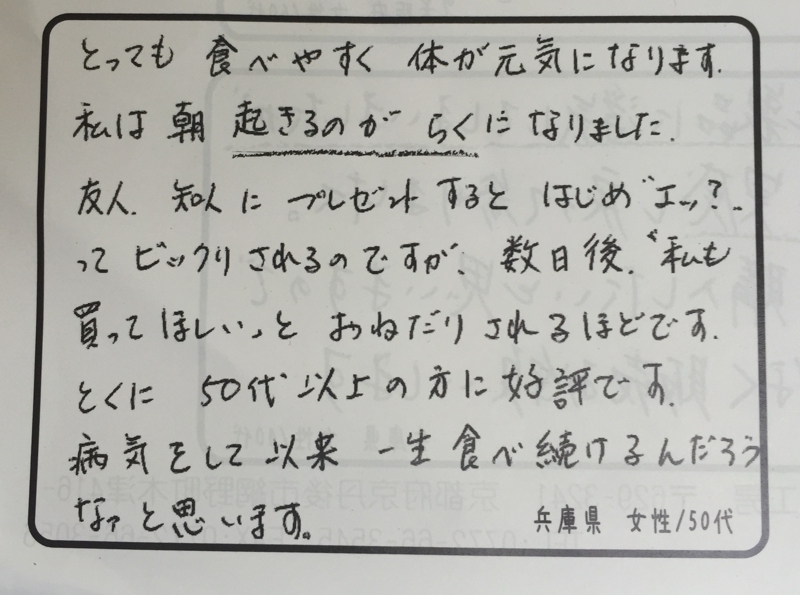 とっても 食べやすく 体が元気になります.
私は 朝 起きるのが らくに なりました.
友人. 知人に プレゼント すると はじめ〝エッ?〟
って ビックリされるのですが、数日後.〝私も
買って ほしい〟と おねだり されるほどです.
とくに 50代 以上の方に 好評です.
病気をして以来 一生 食べ続けるんだろう
なァ と思います。
兵庫県 女性/50代